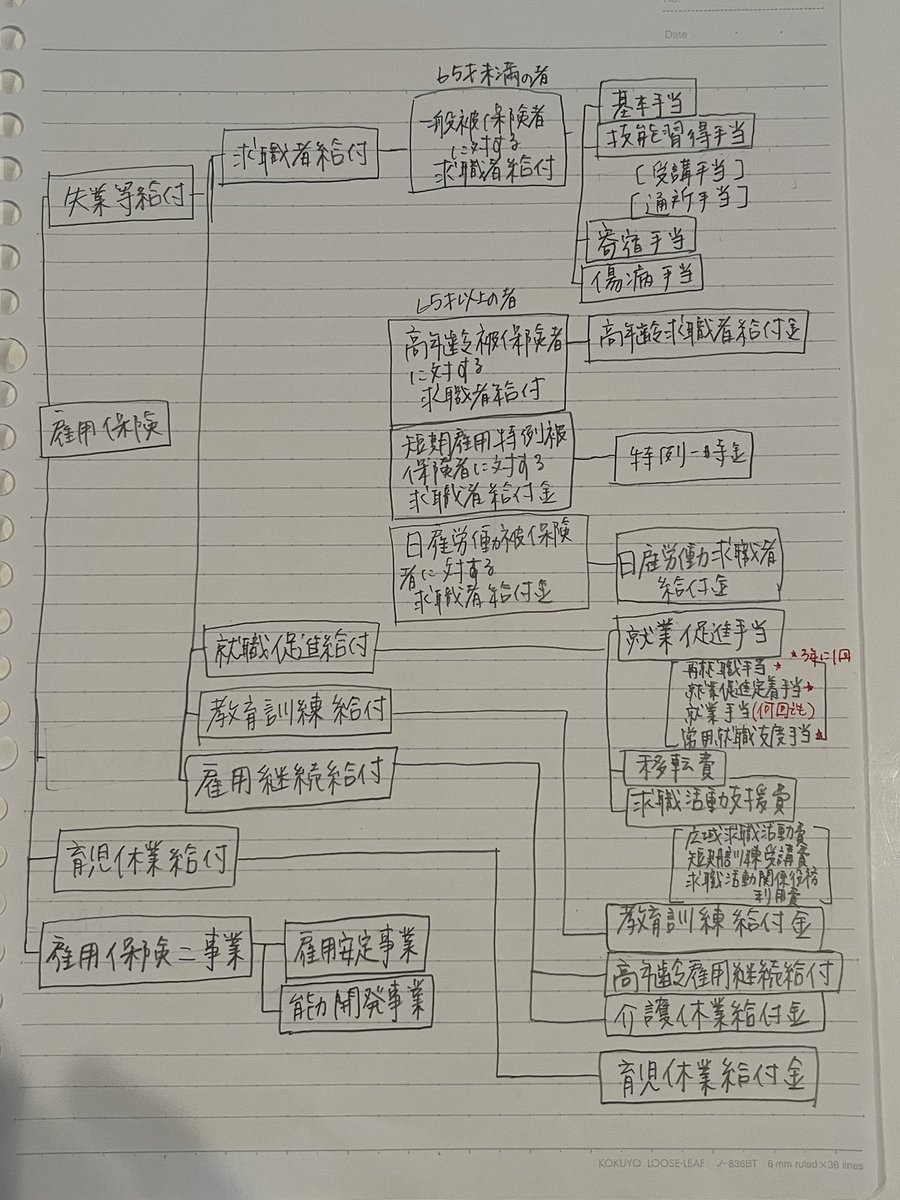 No.
Date
65才未満の者
求職者給付
一般被保険者
に対する
求職者給付
基本手当
技能習得手当
[受講手当]
[通所手当]
寄宿手当
傷病手当
失業等給付
65才以上の者
高年齢被保険者
に対する
求職者給付
高年齢求職者給付金
雇用保険
短期雇用特例被
保険者に対する
求職者給付金
特例一時金
日雇労働被保険
者に対する
求職者給付金
日雇労働求職者
給付金
就職促進給付
就業促進手当
★3年に1回
再就職手当★
就業促進定着手当★
就業手当(何回も)
常用就職支度手当★
教育訓練給付
雇用継続給付
移転費
求職活動支援費
広域求職活動費
短期訓練受講費
求職活動関係役務
利用費
育児休業給付
教育訓練給付金
雇用保険二事業
雇用安定事業
能力開発事業
高年齢雇用継続給付
介護休業給付金
育児休業給付金
KOKUYO LOOSE-LEAF ノ-836BT 6 mm ruled×36 lines